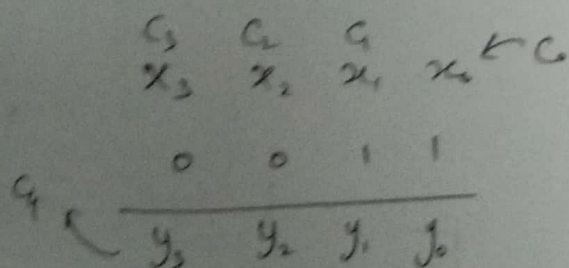 C₃ C₂ C₁
x₃ x₂ x₁ x₀ ← C₀
0 0 1 1
C₄
y₃ y₂ y₁ y₀